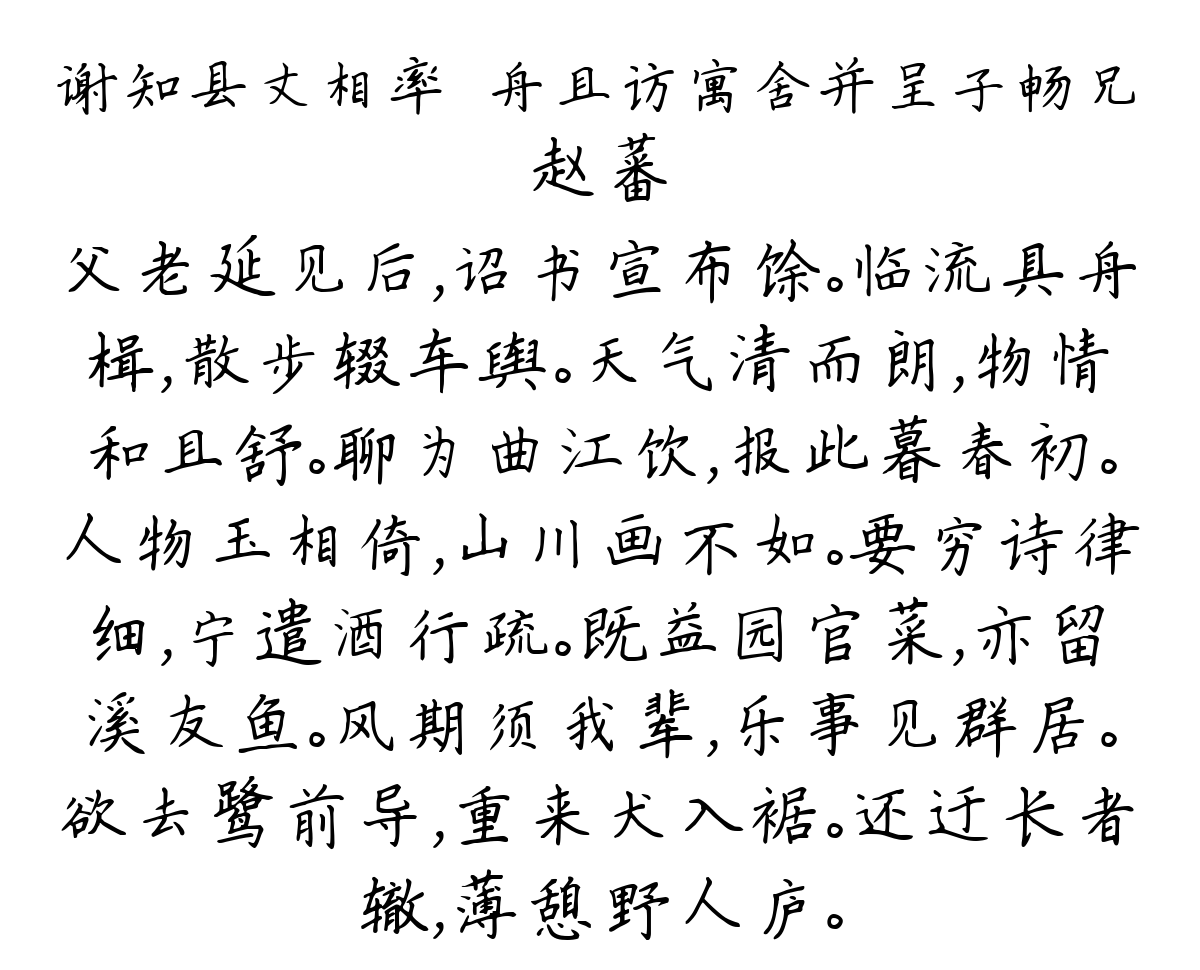 谢知县丈相率 舟且访寓舍并呈子畅兄
赵蕃
父老延见后,诏书宣布馀。临流具舟
楫,散步辍车舆。天气清而朗,物情
和且舒。聊为曲江饮,报此暮春初。
人物玉相倚,山川画不如。要穷诗律
细,宁遣酒行疏。既益园官菜,亦留
溪友鱼。风期须我辈,乐事见群居。
欲去鹭前导,重来犬入裾。还迂长者
辙,薄憩野人庐。